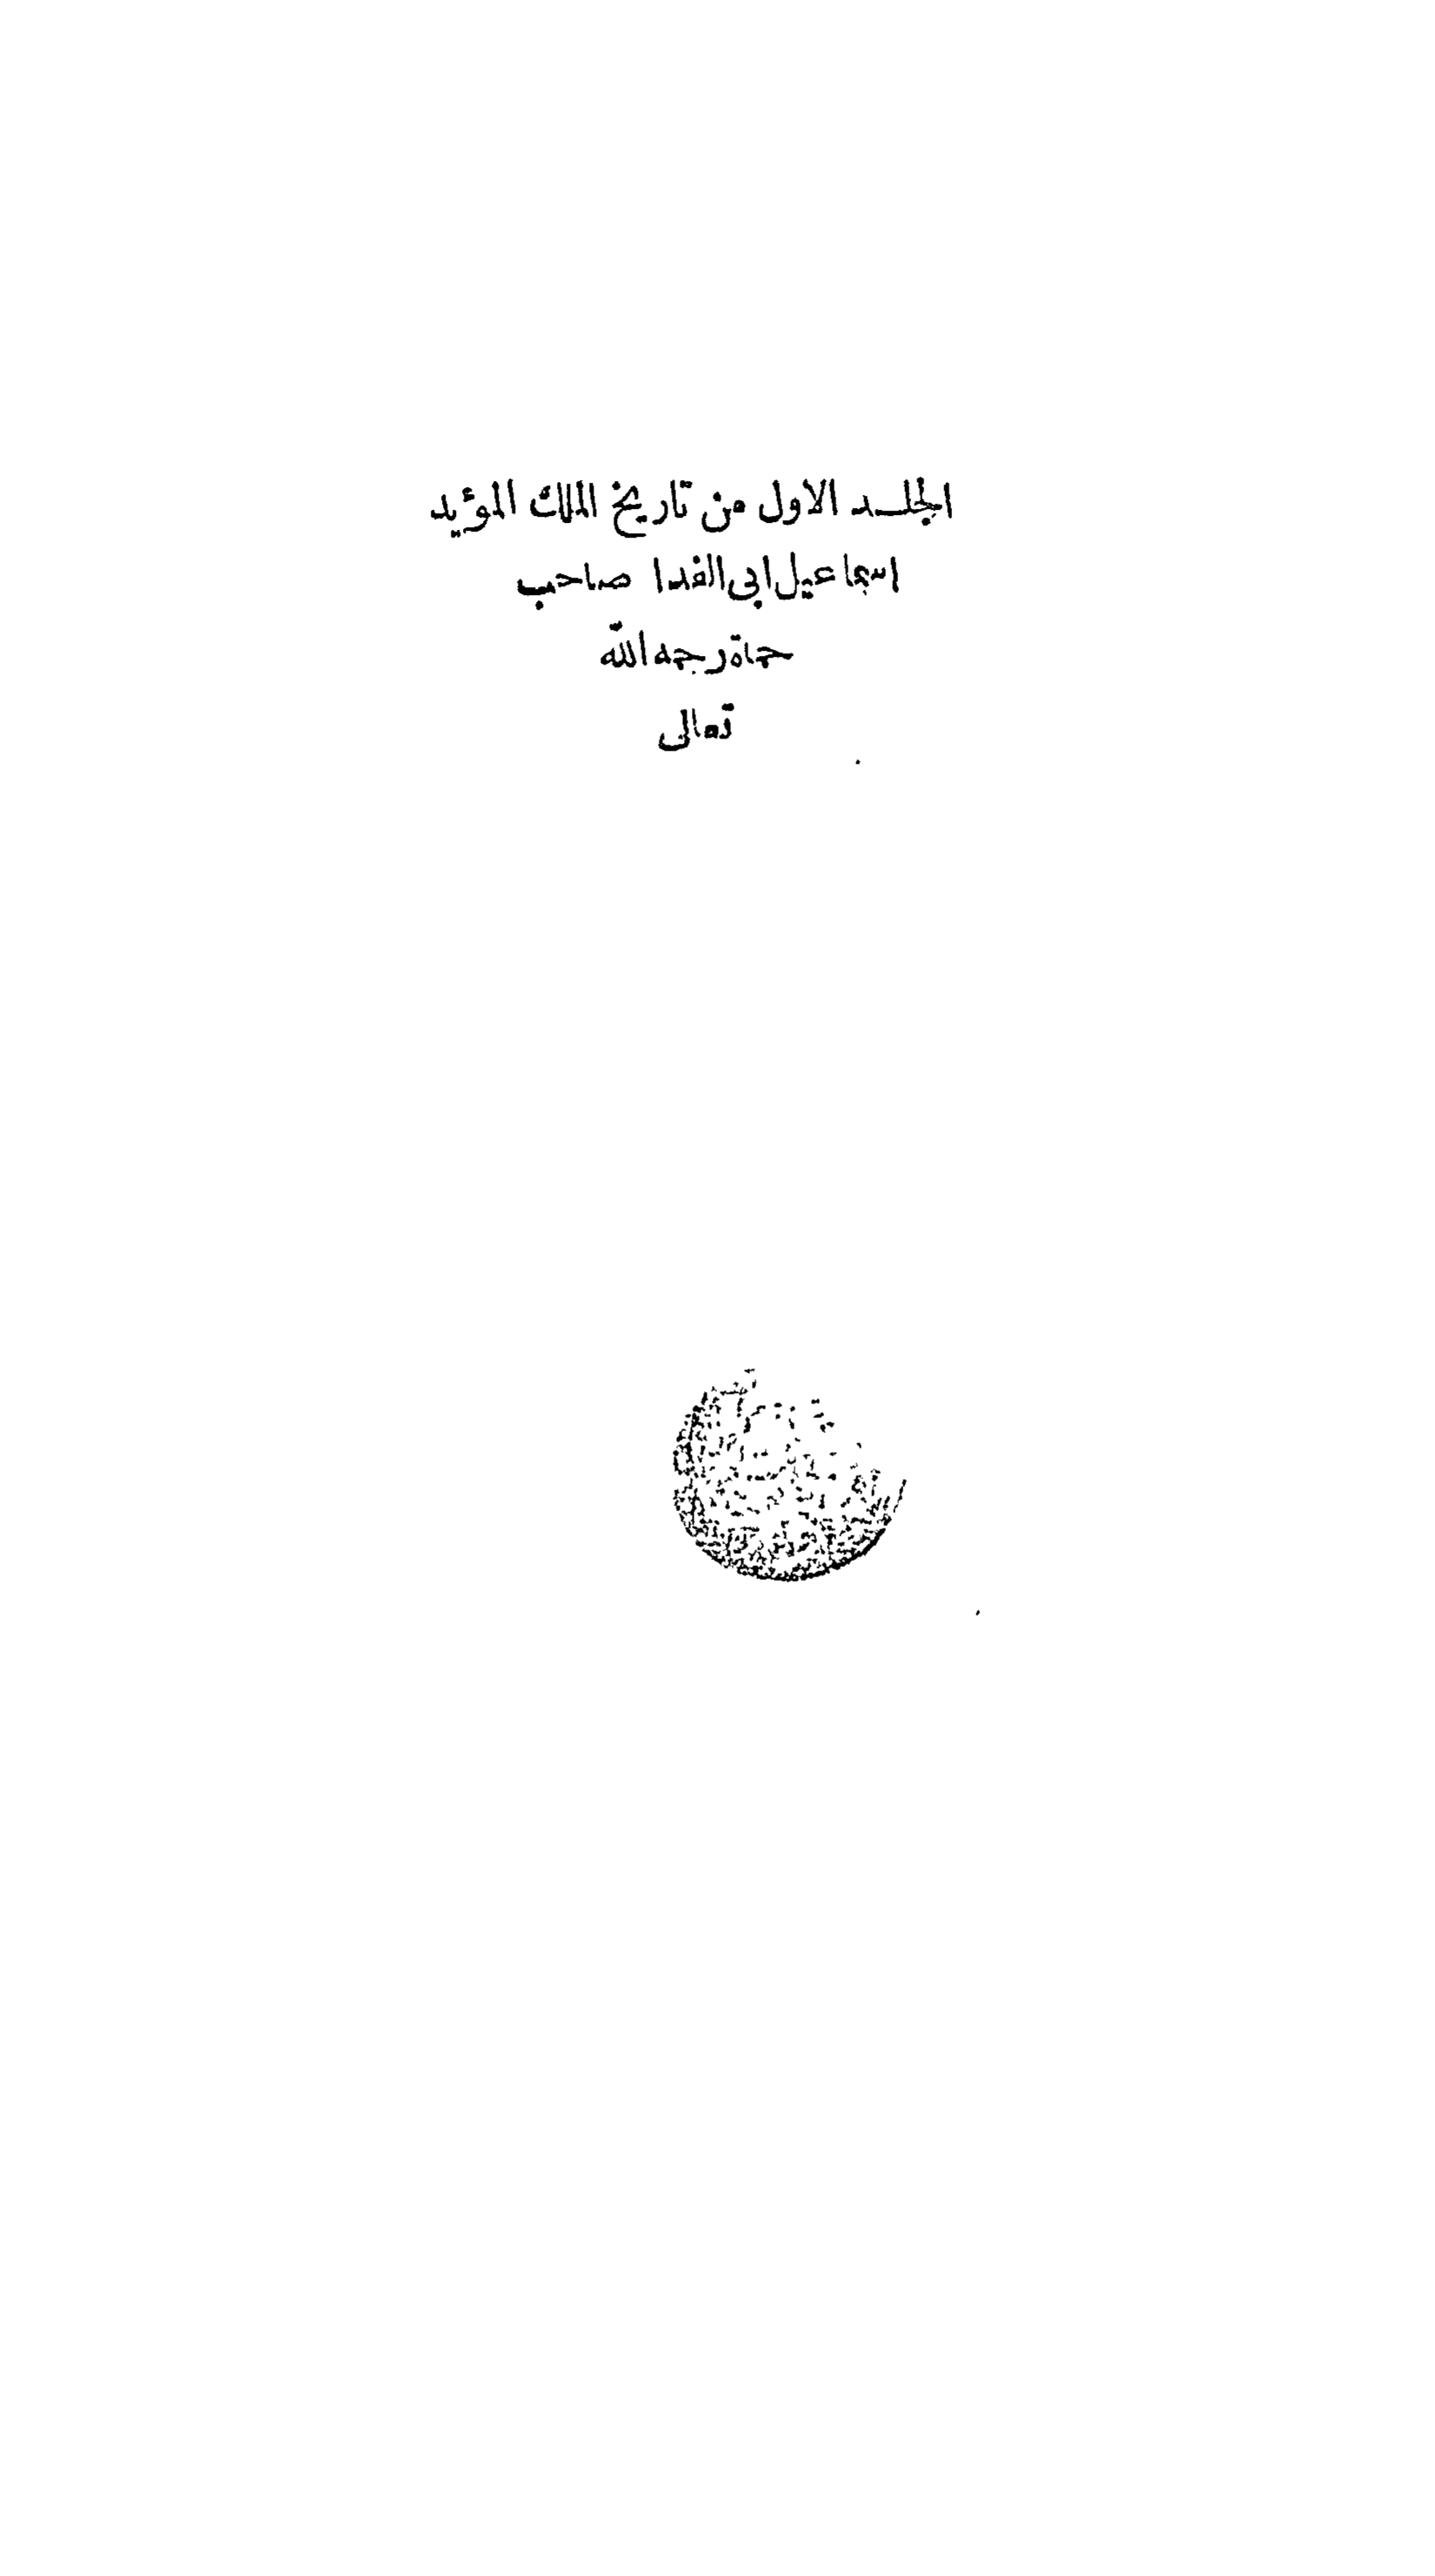 المجلد الاول من تاريخ الملك المؤيد
اسماعيل ابى الفدا صاحب
حماة رحمه الله
تعالى